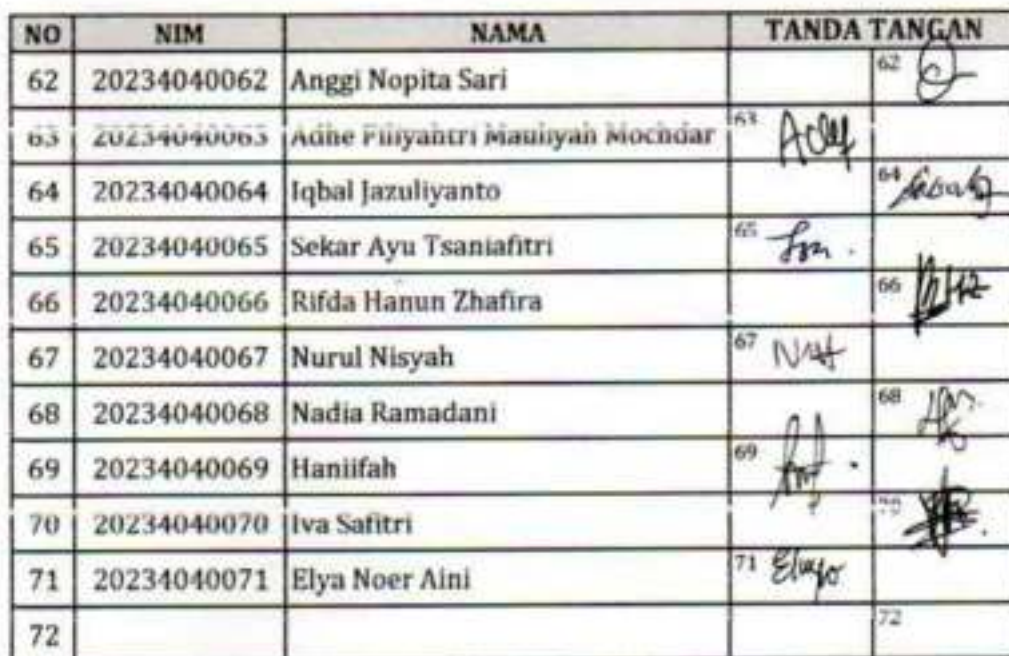 NO NIM NAMA TANDA TANGAN
62 20234040062 Anggi Nopita Sari 62
63 20234040063 Adhe Fitiyahtri Mauliyah Mochdar 63
64 20234040064 Iqbal Jazuliyanto 64
65 20234040065 Sekar Ayu Tsaniafitri 65
66 20234040066 Rifda Hanun Zhafira 66
67 20234040067 Nurul Nisyah 67
68 20234040068 Nadia Ramadani 68
69 20234040069 Haniifah 69
70 20234040070 Iva Safitri 70
71 20234040071 Elya Noer Aini 71
72 72